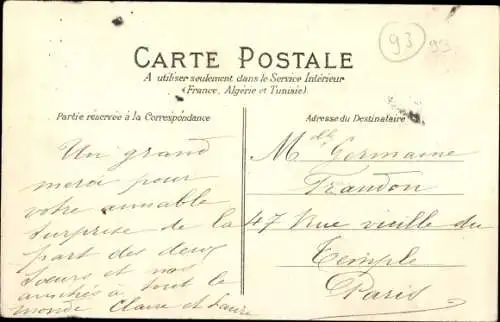 93
93
CARTE POSTALE
A utiliser seulement dans le Service Intérieur
(France, Algérie et Tunisie).
Partie réservée à la Correspondance
Adresse du Destinataire
Un grand
merci pour
votre aimable
surprise de la
part des deux
soeurs et nos
amitiés à tout le
monde Claire et Laure
Mlle Germaine
Trandon
47 Rue vieille du
Temple
Paris